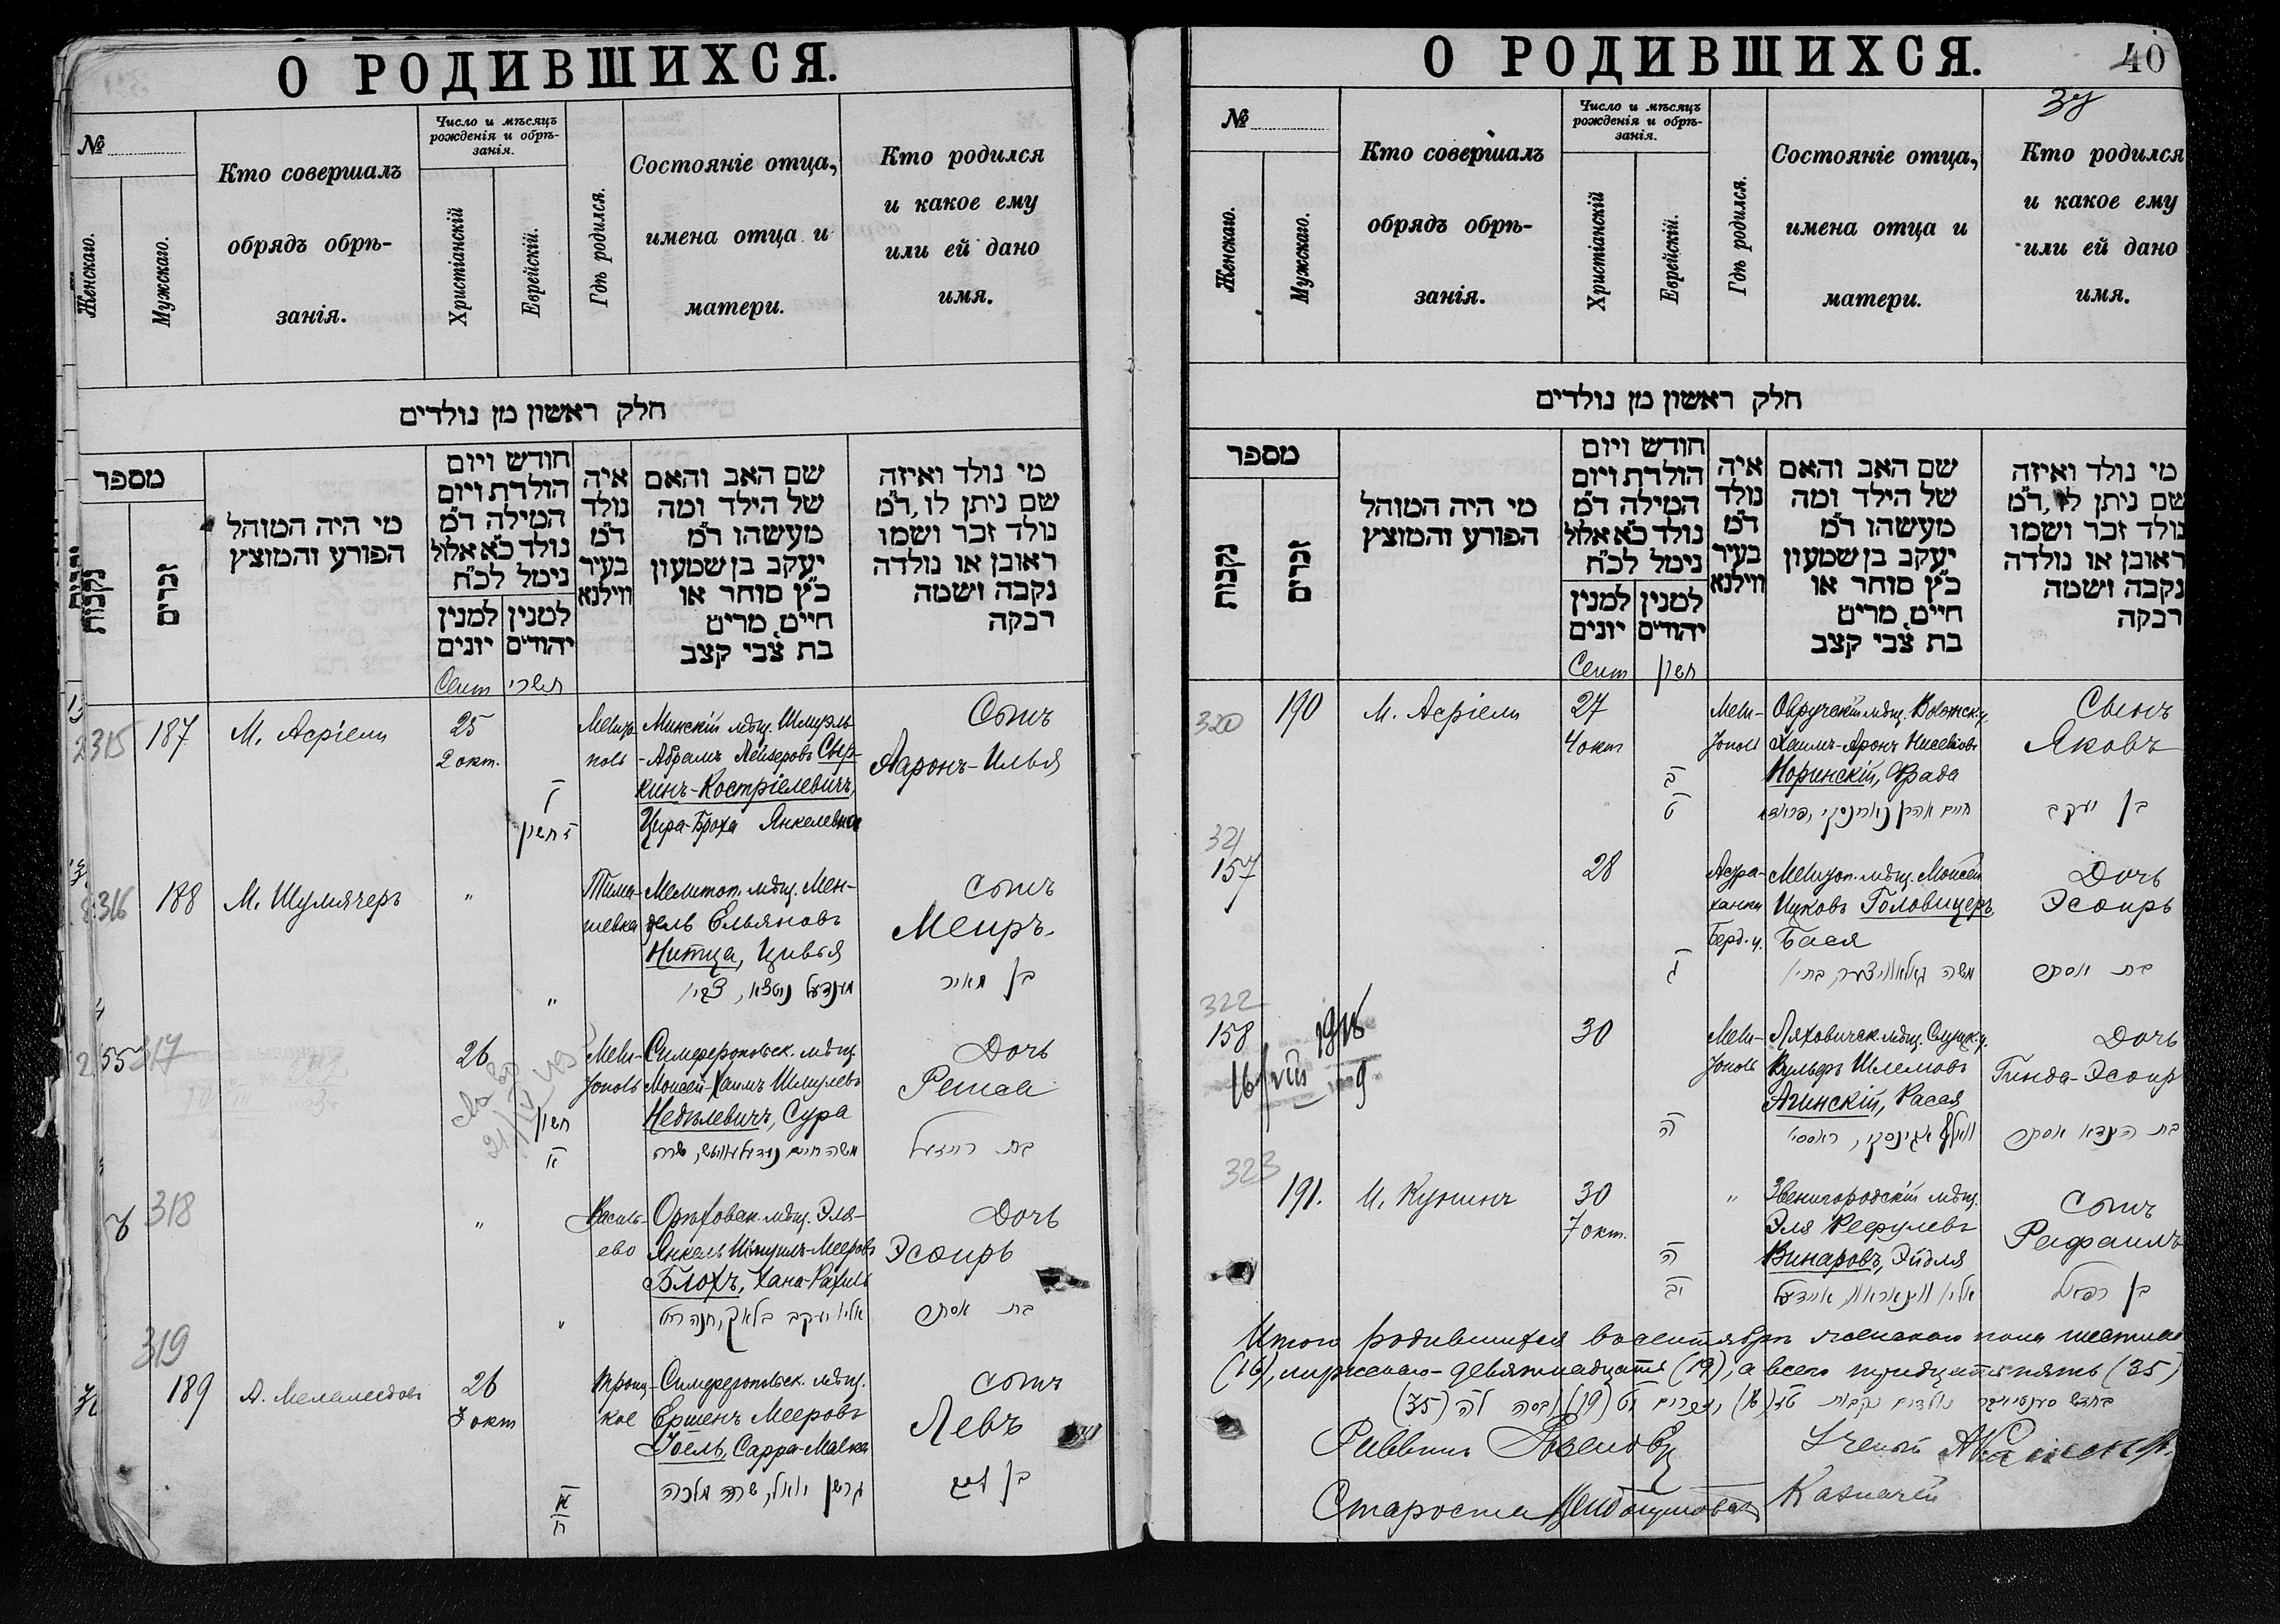 О РОДИВШИХСЯ.
№
Женскаго.
Мужскаго.
Кто совершалъ
обрядъ обрѣ-
занія.
Число и мѣсяцъ
рожденія и обрѣ-
занія.
Христіанскій
Еврейскій.
Гдѣ родился.
Состояніе отца,
имена отца и
матери.
Кто родился
и какое ему
или ей дано
имя.
חלק ראשון מן נולדים
מספר
נקבות
זכרים
מי היה המוהל
הפורע והמוצץ
חודש ויום
הולדת ויום
המילה ד"מ
נולד כ"א אלול
נימל לכ"ח
למנין יונים
למנין יהודים
איה
נולד
ד"מ
בעיר
ווילנא
שם האב והאם
של הילד ומה
מעשהו ד"מ
יעקב בן שמעון
כ"ץ סוחר או
חייט, מרים
בת צבי קצב
מי נולד ואיזה
שם ניתן לו, ד"מ
נולד זכר ושמו
ראובן או נולדה
נקבה ושמה
רבקה
Сент
תשרי
315
187
М. Асріели
25
2 окт.
ז חשון
Минскій мѣщ. Шмуэль
-Абрамъ Лейзеровъ Свер-
кинъ-Костріелевичъ,
Цира-Броха Янкелевна
Сынъ
Ааронъ-Илья
316
188
М. Шумячеръ
"
"
Тима-
шевка
Мелитоп. мѣщ. Мен-
дель Ельяновъ
Нитца, Цивья
Сынъ
Меиръ.
בן מאיר
317
26
חשון
א
Симферопольск. мѣщ.
Моисей-Хаимъ Шмулевъ
Недѣлевичъ, Сура
Дочь
Рейса
318
"
"
Василь-
ево
Орѣховск. мѣщ. Эля-
Янкель Шмуилъ-Мееровъ
Блохъ, Хана-Рахиль
אליו יעקב בלאך, חנה רחל
Дочь
Эсѳирь
בת אסתר
319
189
А. Меламедовъ
26
3 окт
א
ח
Троиц-
кое
Симферопольск. мѣщ.
Ершенъ Мееровъ
Іоель, Сарра-Малка
גרשון יואל, שרה מלכה
Сынъ
Левъ
О РОДИВШИХСЯ.
40
37
№
Женскаго.
Мужскаго.
Кто совершалъ
обрядъ обрѣ-
занія.
Число и мѣсяцъ
рожденія и обрѣ-
занія.
Христіанскій
Еврейскій.
Гдѣ родился.
Состояніе отца,
имена отца и
матери.
Кто родился
и какое ему
или ей дано
имя.
חלק ראשון מן נולדים
מספר
נקבות
זכרים
מי היה המוהל
הפורע והמוצץ
חודש ויום
הולדת ויום
המילה ד"מ
נולד כ"א אלול
נימל לכ"ח
למנין יונים
למנין יהודים
איה
נולד
ד"מ
בעיר
ווילנא
שם האב והאם
של הילד ומה
מעשהו ד"מ
יעקב בן שמעון
כ"ץ סוחר או
חייט, מרים
בת צבי קצב
מי נולד ואיזה
שם ניתן לו, ד"מ
נולד זכר ושמו
ראובן או נולדה
נקבה ושמה
רבקה
Сент
חשון
320
190
М. Асріели
27
4 окт
ב
ט
Овручскій мѣщ. Волынск. г.
Хаимъ-Аронъ
Норинскій, Фрада
Сынъ
Яковъ
בן יעקב
321
157
28
ג
Астра-
ханка
Берд. у.
Мелитоп. мѣщ. Моисей
Ицковъ Головчеръ
Бася
Дочь
Эсѳирь
בת אסתר
322
158
30
ה
Ляховичск. мѣщ. Слуцк. у.
Вульфъ Шлемовъ
Агинскій, Рася
Дочь
Гинда-Эсѳирь
בת הינדא אסתר
323
191.
И. Кушнъ
30
7 окт.
ה
יב
"
Звенигородскій мѣщ.
Эля Рефулевъ
Винаровъ, Эйдля
Сынъ
Рафаилъ
בן רפאל
Итого родившихся въ сентябрѣ женскаго пола шестнад
(16), мужскаго-девятнадцать (19), а всего тридцать пять (35)
Раввинъ
Ученый
Староста
Казначей